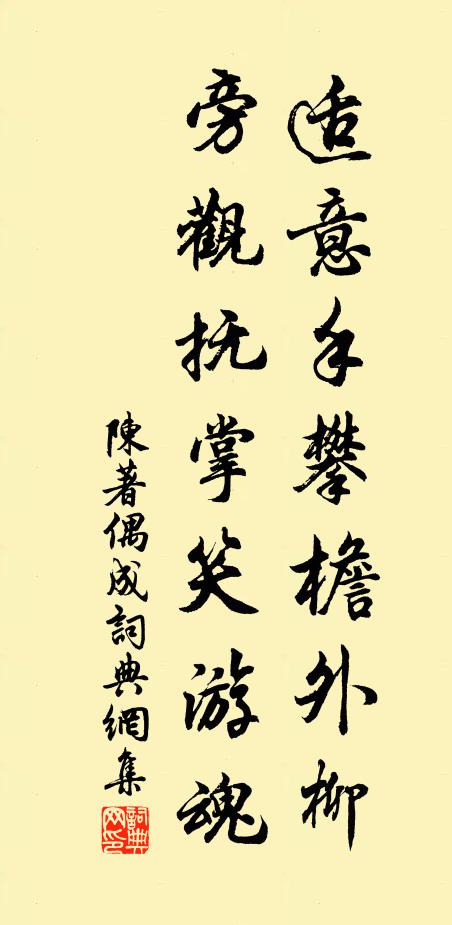 适意手攀檐外柳
旁觀抚掌笑游魂
陳著偶成詞典網集
詞典
网印